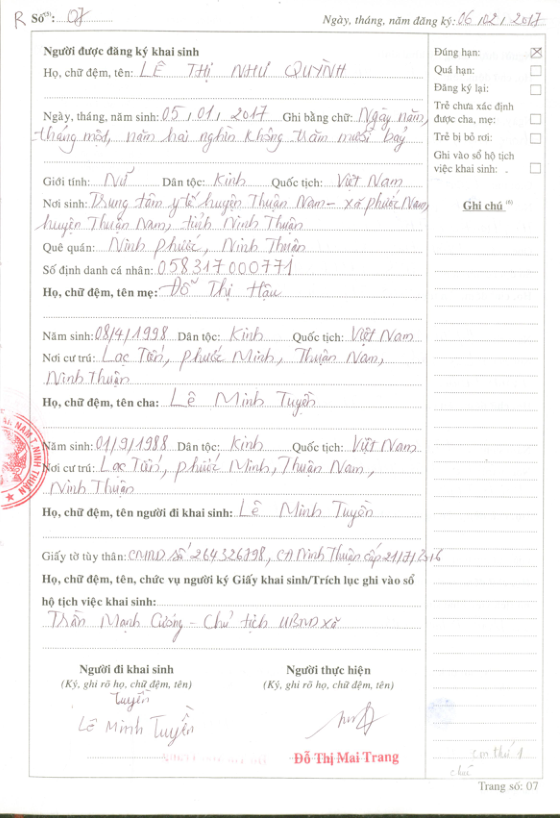 R Số⁽¹⁾: 07
Ngày, tháng, năm đăng ký: 06/02/2017
Người được đăng ký khai sinh
Họ, chữ đệm, tên: LÊ THỊ NHƯ QUỲNH
Ngày, tháng, năm sinh: 05/01/2017 Ghi bằng chữ: Ngày năm,
tháng một, năm hai nghìn không trăm mười bảy
Giới tính: Nữ Dân tộc: Kinh Quốc tịch: Việt Nam
Nơi sinh: Trung tâm y tế huyện Thuận Nam - xã Phước Nam,
huyện Thuận Nam, tỉnh Ninh Thuận
Quê quán: Ninh Phước, Ninh Thuận
Số định danh cá nhân: 058317000771
Họ, chữ đệm, tên mẹ: Đỗ Thị Hậu
Năm sinh: 08/4/1998 Dân tộc: Kinh Quốc tịch: Việt Nam
Nơi cư trú: Lạc Tấn, Phước Minh, Thuận Nam,
Ninh Thuận
Họ, chữ đệm, tên cha: Lê Minh Tuyền
Năm sinh: 01/9/1988 Dân tộc: Kinh Quốc tịch: Việt Nam
Nơi cư trú: Lạc Tấn, Phước Minh, Thuận Nam,
Ninh Thuận
Họ, chữ đệm, tên người đi khai sinh: Lê Minh Tuyền
Giấy tờ tùy thân: CMND số 264326798, CA Ninh Thuận cấp 21/7/2016
Họ, chữ đệm, tên, chức vụ người ký Giấy khai sinh/Trích lục ghi vào sổ
hộ tịch việc khai sinh:
Trần Mạnh Cường - Chủ tịch UBND xã
Người đi khai sinh
(Ký, ghi rõ họ, chữ đệm, tên)
Tuyền
Lê Minh Tuyền
Người thực hiện
(Ký, ghi rõ họ, chữ đệm, tên)
Đỗ Thị Mai Trang
Đúng hạn:
Quá hạn:
Đăng ký lại:
Trẻ chưa xác định
được cha, mẹ:
Trẻ bị bỏ rơi:
Ghi vào sổ hộ tịch
việc khai sinh:
Ghi chú ⁽⁶⁾
con thứ 1
NAM.T.NINH THUẬN
Trang số: 07